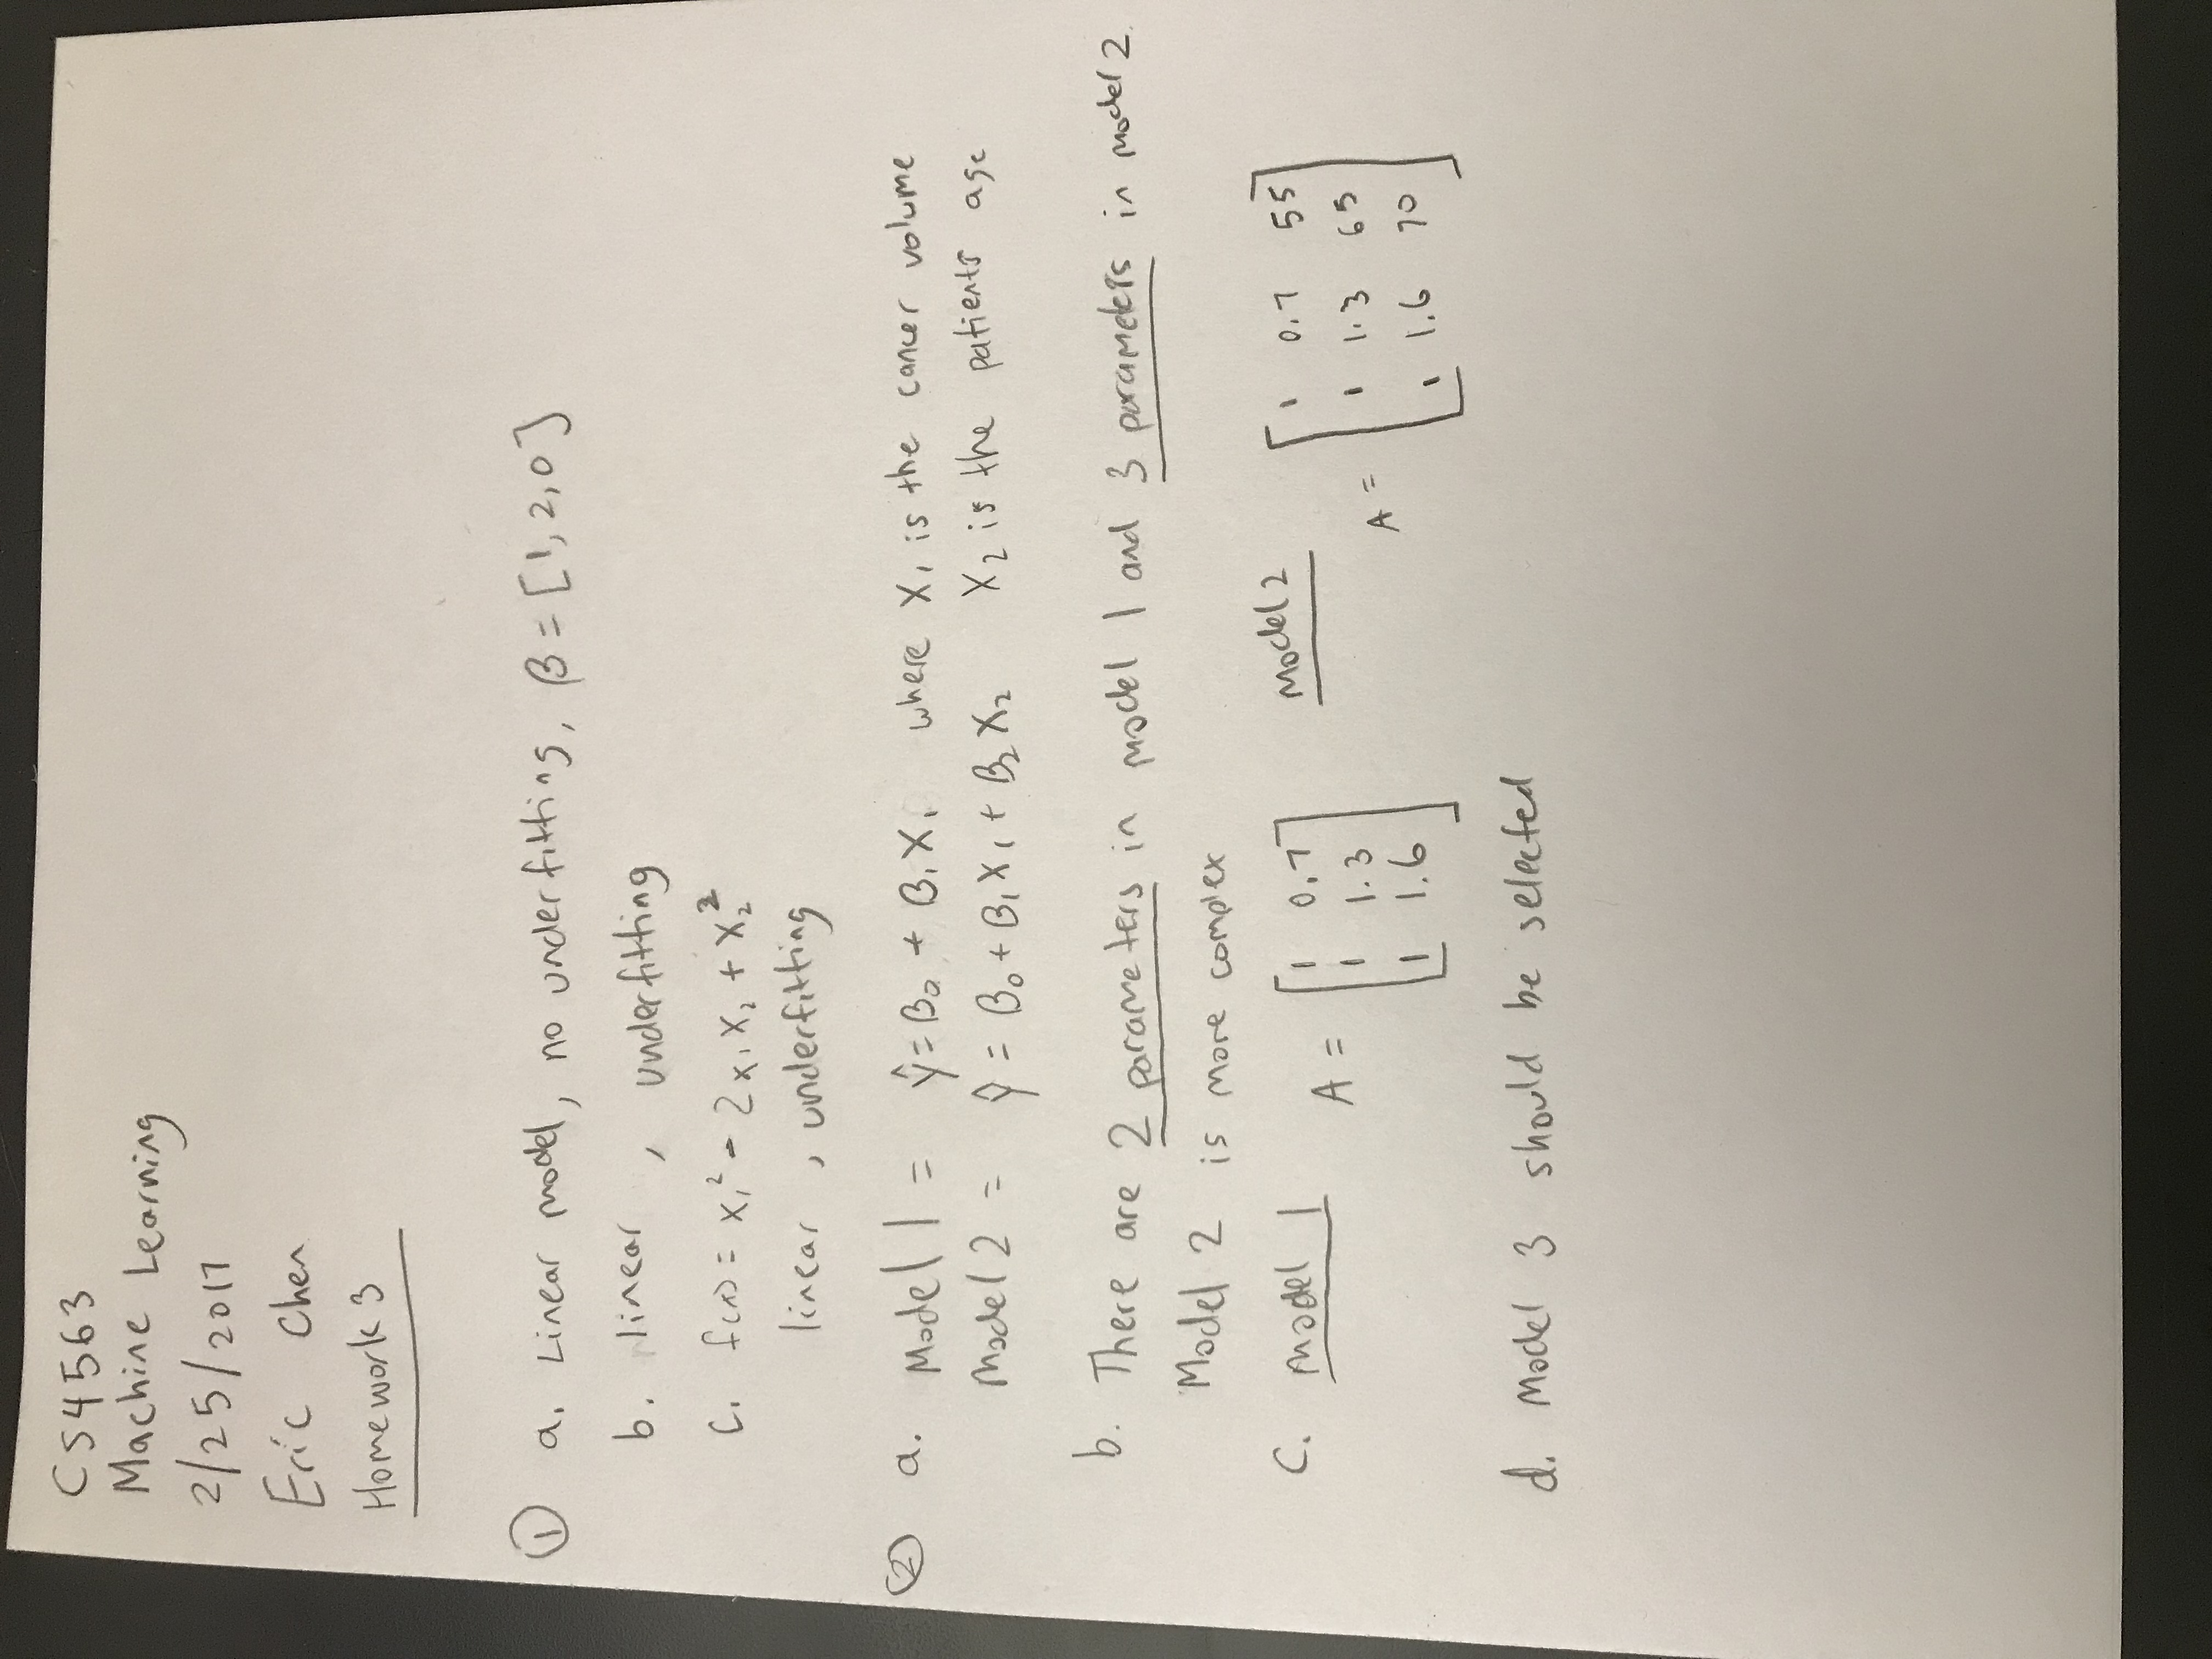 CS4563
Machine Learning
2/25/2017
Eric Chen
Homework 3
① a. Linear model, no underfitting, β = [1, 2, 0]
b. linear , underfitting
c. f(x) = x₁² - 2x₁x₂ + x₂²
linear , underfitting
② a. Model 1 = ŷ = β₀ + β₁x₁ where x₁ is the cancer volume
Model 2 = ŷ = β₀ + β₁x₁ + β₂x₂ x₂ is the patients age
b. There are 2 parameters in model 1 and 3 parameters in model 2.
Model 2 is more complex
c. model 1 A = [1 0.7 model 2 A = [1 0.7 55
1 1.3 1 1.3 65
1 1.6] 1 1.6 70]
d. Model 3 should be selected